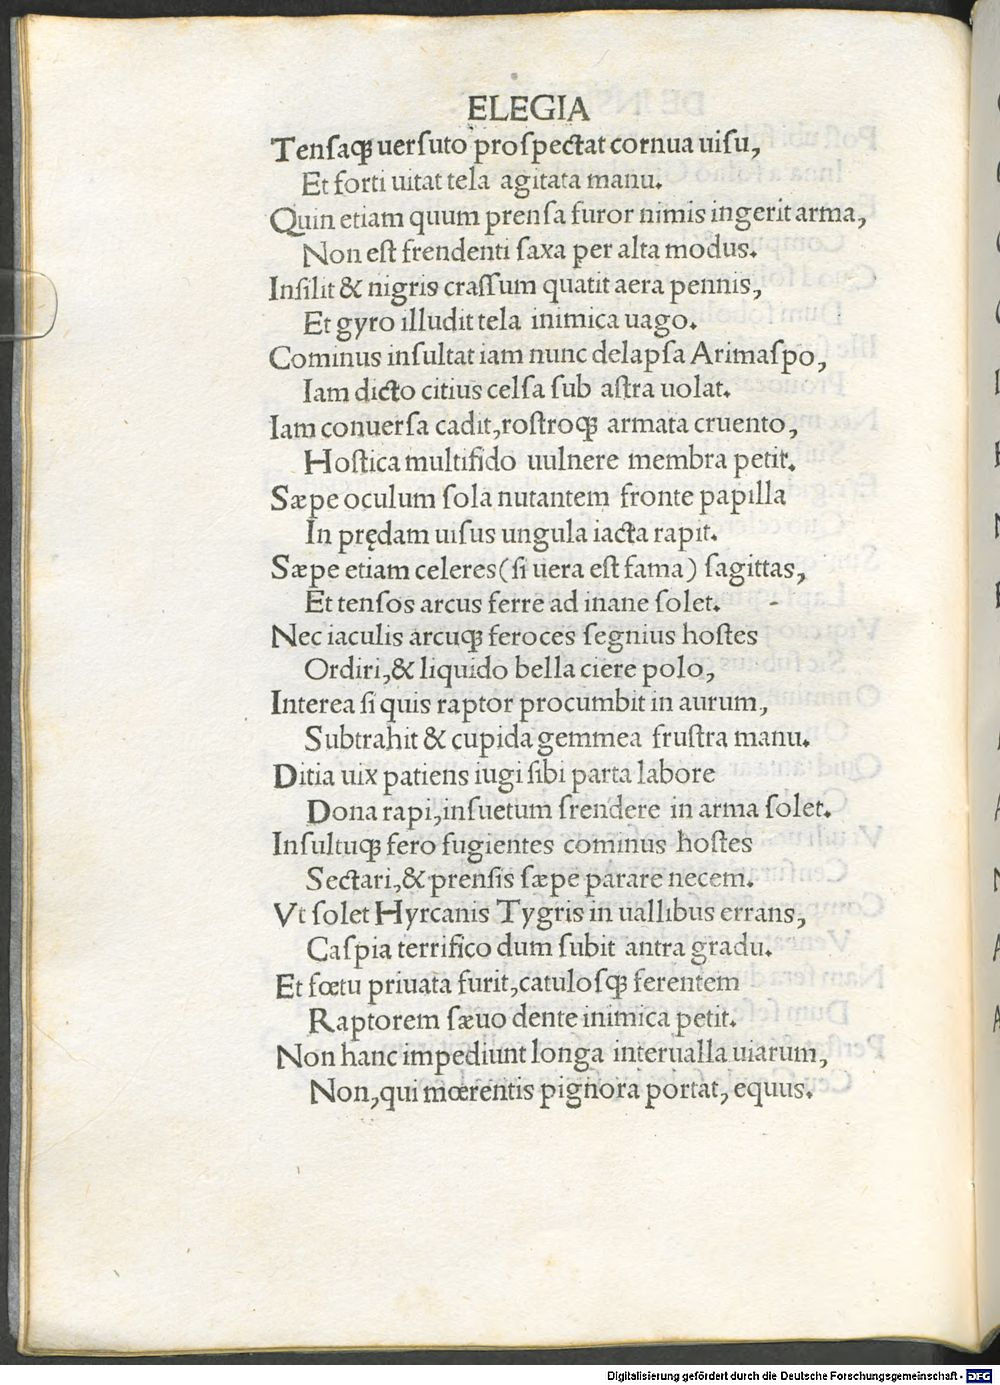 ELEGIA
Tenſaqꝫ uerſuto proſpectat cornua uiſu,
Et forti uitat tela agitata manu.
Quin etiam quum prenſa furor nimis ingerit arma,
Non eſt frendenti ſaxa per alta modus.
Inſilit & nigris craſſum quatit aera pennis,
Et gyro illudit tela inimica uago.
Cominus inſultat iam nunc delapſa Arimaſpo,
Iam dicto citius celſa ſub aſtra uolat.
Iam conuerſa cadit, roſtroqꝫ armata cruento,
Hoſtica multifido uulnere membra petit.
Sæpe oculum ſola nutantem fronte papilla
In prędam uiſus ungula iacta rapit.
Sæpe etiam celeres (ſi uera eſt fama) ſagittas,
Et tenſos arcus ferre ad inane ſolet.
Nec iaculis arcuqꝫ feroces ſegnius hoſtes
Ordiri, & liquido bella ciere polo,
Interea ſi quis raptor procumbit in aurum,
Subtrahit & cupida gemmea fruſtra manu.
Ditia uix patiens iugi ſibi parta labore
Dona rapi, inſuetum frendere in arma ſolet.
Inſultuqꝫ fero fugientes cominus hoſtes
Sectari, & prenſis ſæpe parare necem.
Vt ſolet Hyrcanis Tygris in uallibus errans,
Caſpia terrifico dum ſubit antra gradu.
Et fœtu priuata furit, catuloſqꝫ ferentem
Raptorem ſæuo dente inimica petit.
Non hanc impediunt longa interualla uiarum,
Non, qui mœrentis pignora portat, equus.
Digitalisierung gefördert durch die Deutsche Forschungsgemeinschaft - DFG